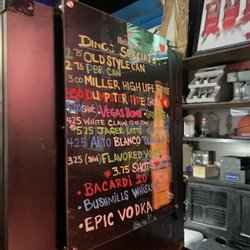 Dingo Specials
2.75 OLD STYLE CAN
2.75 PBR CAN
3.00 MILLER HIGH LIFE
4.50 DUMPSTER FIRE SHOT
SHOT VEGAS BOMB
4.25 WHITE CLAW 12 oz CAN
5.25 JAGER LATTE
4.25 ALTO BLANCO
3.25 FLAVORED
*3.75 SHOTS
• BACARDI 10
• BUSHMILLS WHISKEY
• EPIC VODKA